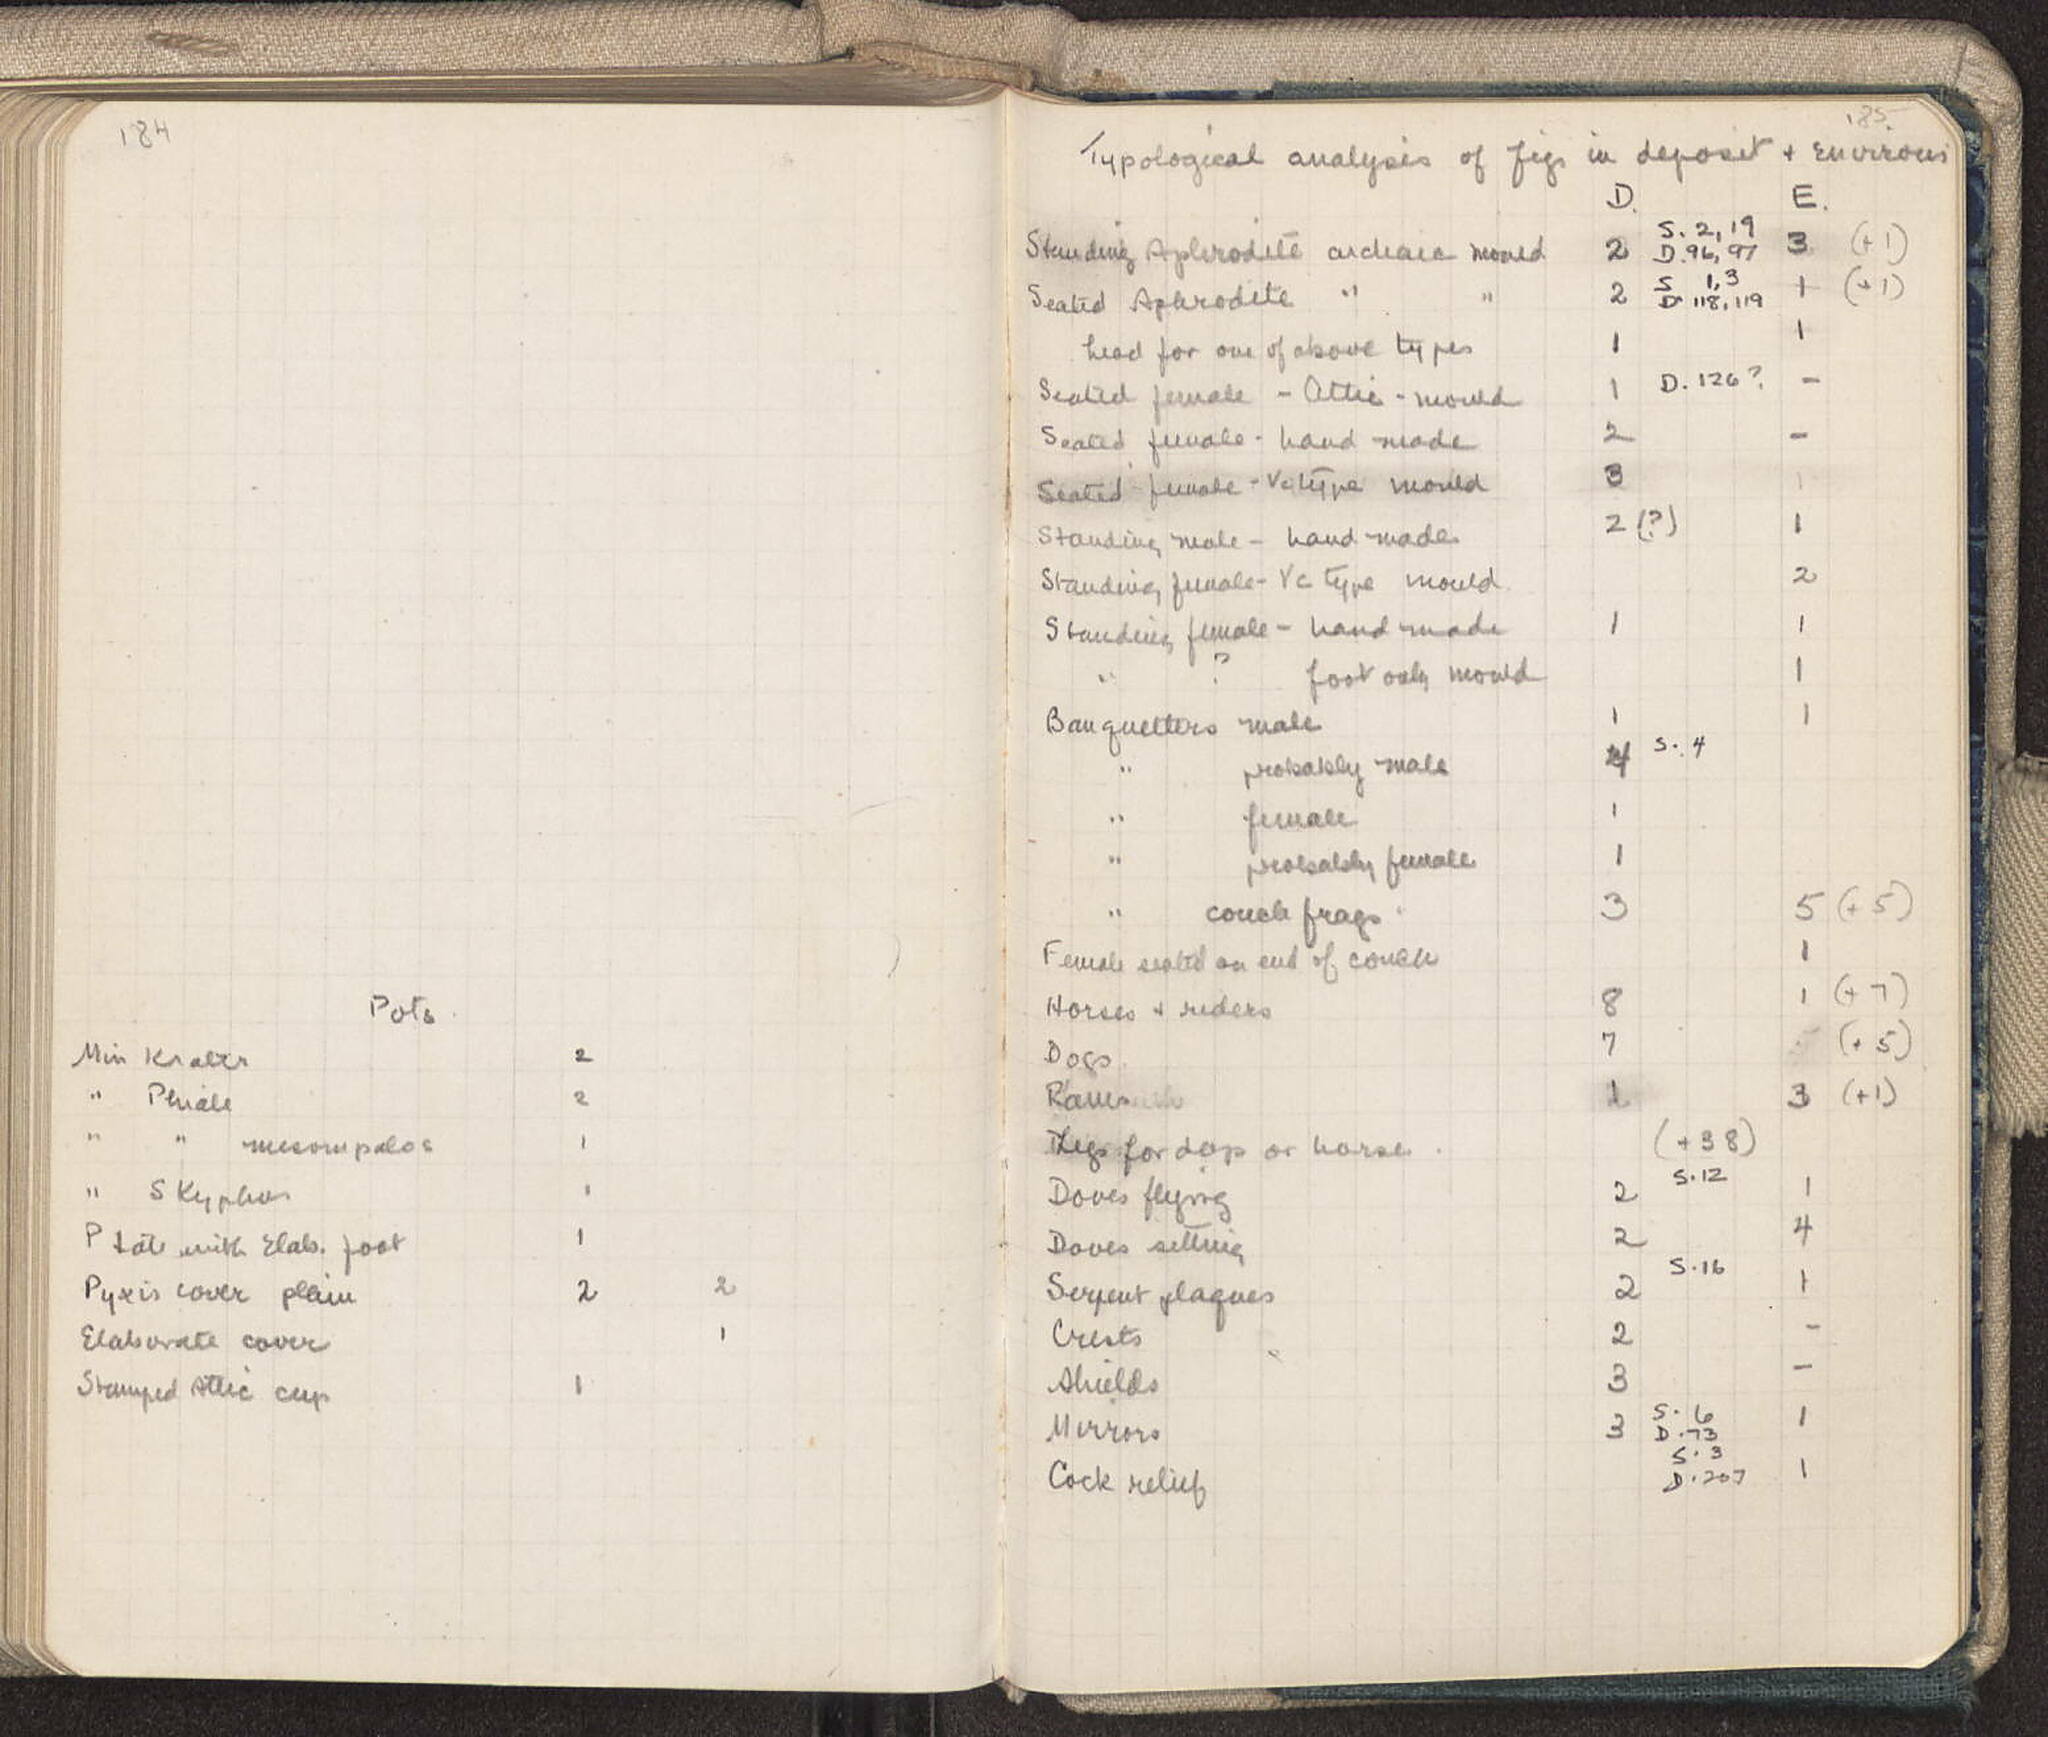 184
Pots.
Min Krater 2
" Phiale 2
" " mesompalos 1
" Skyphos 1
Plate with Elab. foot 1
Pyxis cover plain 2 2
Elaborate cover 1
Stamped Attic cup 1
185.
Typological analysis of figs in deposit + environs
D. E.
Standing Aphrodite archaic mould 2 S. 2, 19 D. 96, 97 3 (+1)
Seated Aphrodite " " 2 S 1, 3 D. 118, 119 1 (+1)
head for one of above types 1 1
Seated female - Attic - mould 1 D. 126? -
Seated female - hand made 2 -
Seated female - Vc type mould 3
Standing male - hand made 2 (?) 1
Standing female - Vc type mould 2
Standing female - hand made 1 1
" ? foot only mould 1
Banquetters male 1 1
" probably male 4 S. 4
" female 1
" probably female 1
" couch frags 3 5 (+5)
Female seated on end of couch 1
Horses + riders 8 1 (+7)
Dogs. 7 (+5)
Rams 1 3 (+1)
Legs for dogs or horse. (+38)
Doves flying 2 S. 12 1
Doves setting 2 4
Serpent plaques 2 S. 16 1
Crests 2 -
Shields 3 -
Mirrors 3 S. 6 D. 73 1
Cock relief S. 3 D. 207 1